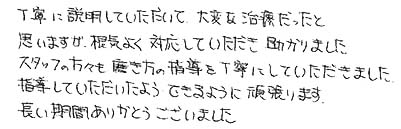 丁寧に説明していただいて、大変な治療だったと
思いますが、根気よく対応していただき助かりました
スタッフの方々も磨き方の指導を丁寧にしていただきました。
指導していただいたようできるように頑張ります。
長い期間ありがとうございました